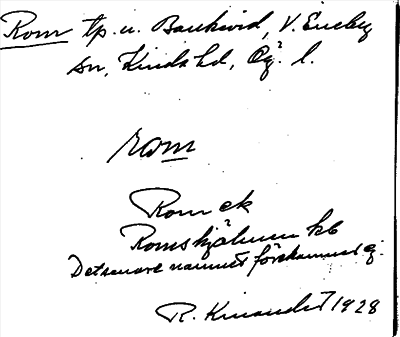 Rom tp. u. Bankvid, V. Eneby
sn, Kinda hd, Ög. l.
rom
Rom ek
Romskjälmen kb
Det senare namnet förekommer ej.
R. Kinander 1928